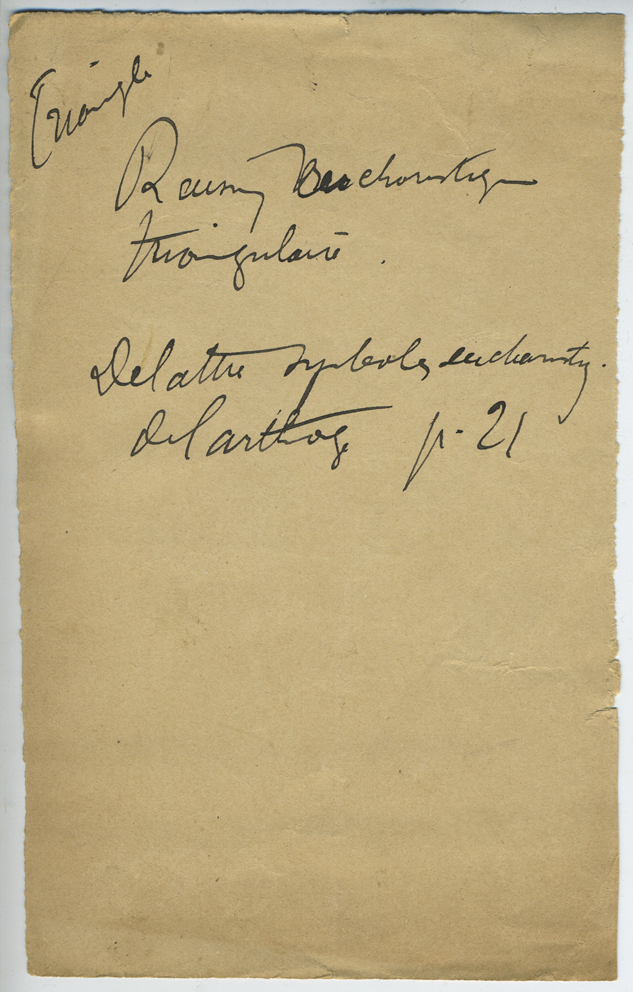 Triangle
Raisin Eucharistique
triangulaire.
Delattre Symboles eucharistiq.
de Carthage p. 21